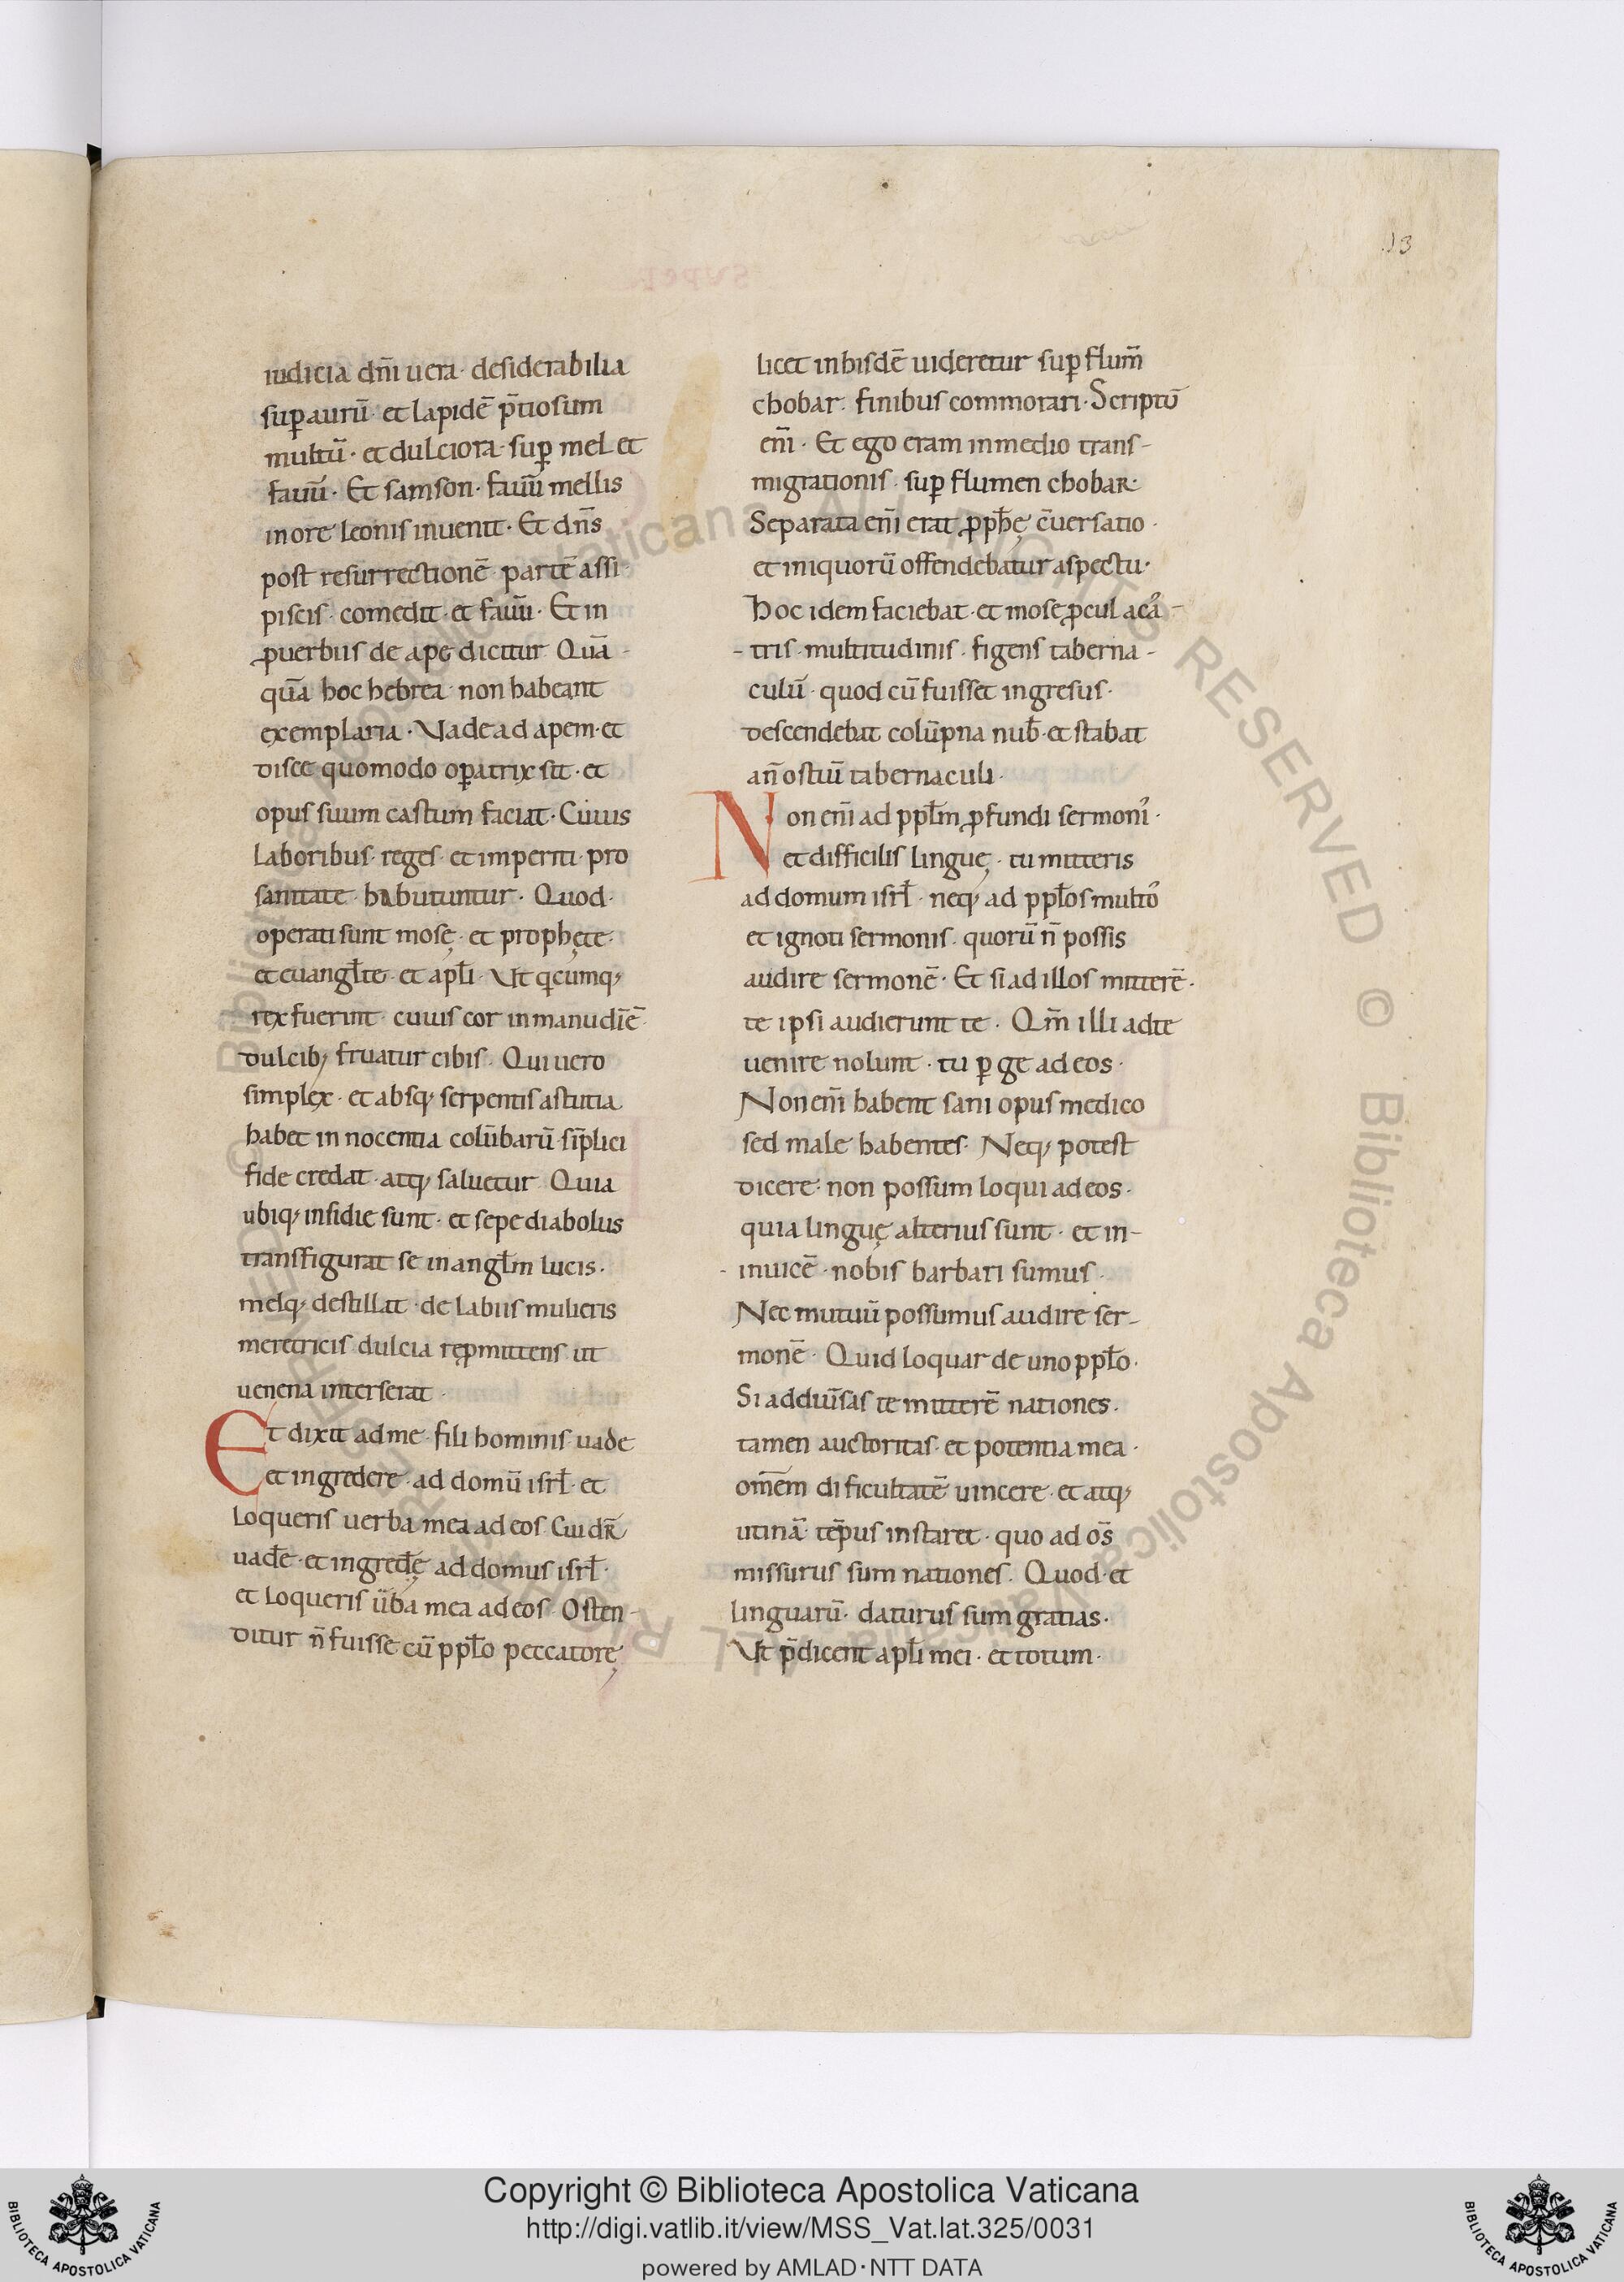 13
iudicia dn̄i uera· desiderabilia
suꝑ aurū· et lapidē p̄tiosum
multū· et dulciora· suꝑ mel et
fauū· Et samson· fauū mellis
in ore leonis inuenit· Et dn̄s
post resurrectionē· partē assi
piscis· comedit· et fauū· Et in
ꝓuerbiis de ape dicitur Quā-
quā hoc hebrea non habeant
exemplaria· Vade ad apem· et
disce quomodo oꝑatrix sit· et
opus suum castum faciat· Cuius
laboribus· reges· et imperiti· pro
sanitate· habutuntur· Quod·
operati sunt mosę· et prophęte·
et euangl̄te· et apl̄i· Ut qcūmq;
rex fuerint· cuius cor in manu dīē
dulcib; fruatur cibis· Qui uero
simplex· et absq; serpentis astutia
habet in nocentia colūbarū· sīplici
fide credat· atq; saluetur Quia
ubiq; insidie sunt· et sepe diabolus
transfigurat se in angl̄m lucis·
melq; destillat· de labiis mulieris
meretricis dulcia reꝓmittens ut
uenena interserat·
Et dixit ad me· fili hominis uade
et ingredere· ad domū isrł· et
loqueris uerba mea ad eos Cui dr̄
uade· et ingredę ad domus isrł·
et loqueris ūba mea ad eos· Osten-
ditur n̄ fuisse cū ppl̄o peccatore,
licet in hisdē uideretur suꝑ flum̄
chobar· finibus commorari· Scriptū
en̄i· Et ego eram in medio trans-
migrationis· suꝑ flumen chobar·
Separata en̄i erat ꝓpħę c̄uersatio·
et iniquorū offendebatur aspectu·
Hoc idem faciebat· et mose ꝓcul a ca᷒-
-tris· multitudinis· figens taberna-
culū· quod cū fuisset ingresus·
descendebat colūpna nub̄· et stabat
an̄ ostiū tabernaculi·
Non en̄i ad ppl̄m ꝓfundi sermoni᷒·
et difficilis linguę· tu mitteris
ad domum isrł· neq; ad ppl̄os multo᷒
et ignoti sermonis· quorū n̄ possis
audire sermonē· Et si ad illos mitterē·
te ipsi audierunt te· Qm̄ illi ad te
uenire nolunt· tu ꝑge ad eos·
Non en̄i habent sani opus medico
sed male habentes· Neq; potest
dicere· non possum loqui ad eos·
quia linguę alterius sunt· et in-
-inuicē· nobis barbari sumus·
Nec mutuū possumus audire ser-
monē· Quid loquar de uno ppl̄o·
Si ad diūsas te mitterē nationes·
tamen auctoritas· et potentia mea·
om̄em dificultatē uincere· et atq;
utinā tēpus instaret· quo ad os̄
missurus sum nationes· Quod· et
linguarū· daturus sum gratias·
Ut p̄dicent apl̄i mei· et totum·
© Biblioteca Apostolica Vaticana ALL RIGHTS RESERVED
Copyright © Biblioteca Apostolica Vaticana
http://digi.vatlib.it/view/MSS_Vat.lat.325/0031
powered by AMLAD·NTT DATA
BIBLIOTECA APOSTOLICA VATICANA
BIBLIOTECA APOSTOLICA VATICANA